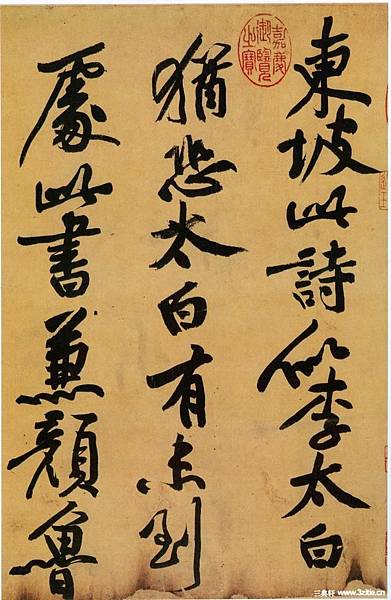 東坡此詩似李太白
猶恐太白有未到
處此書兼顏魯
嘉慶御覽之寶
www.3zitie.cn